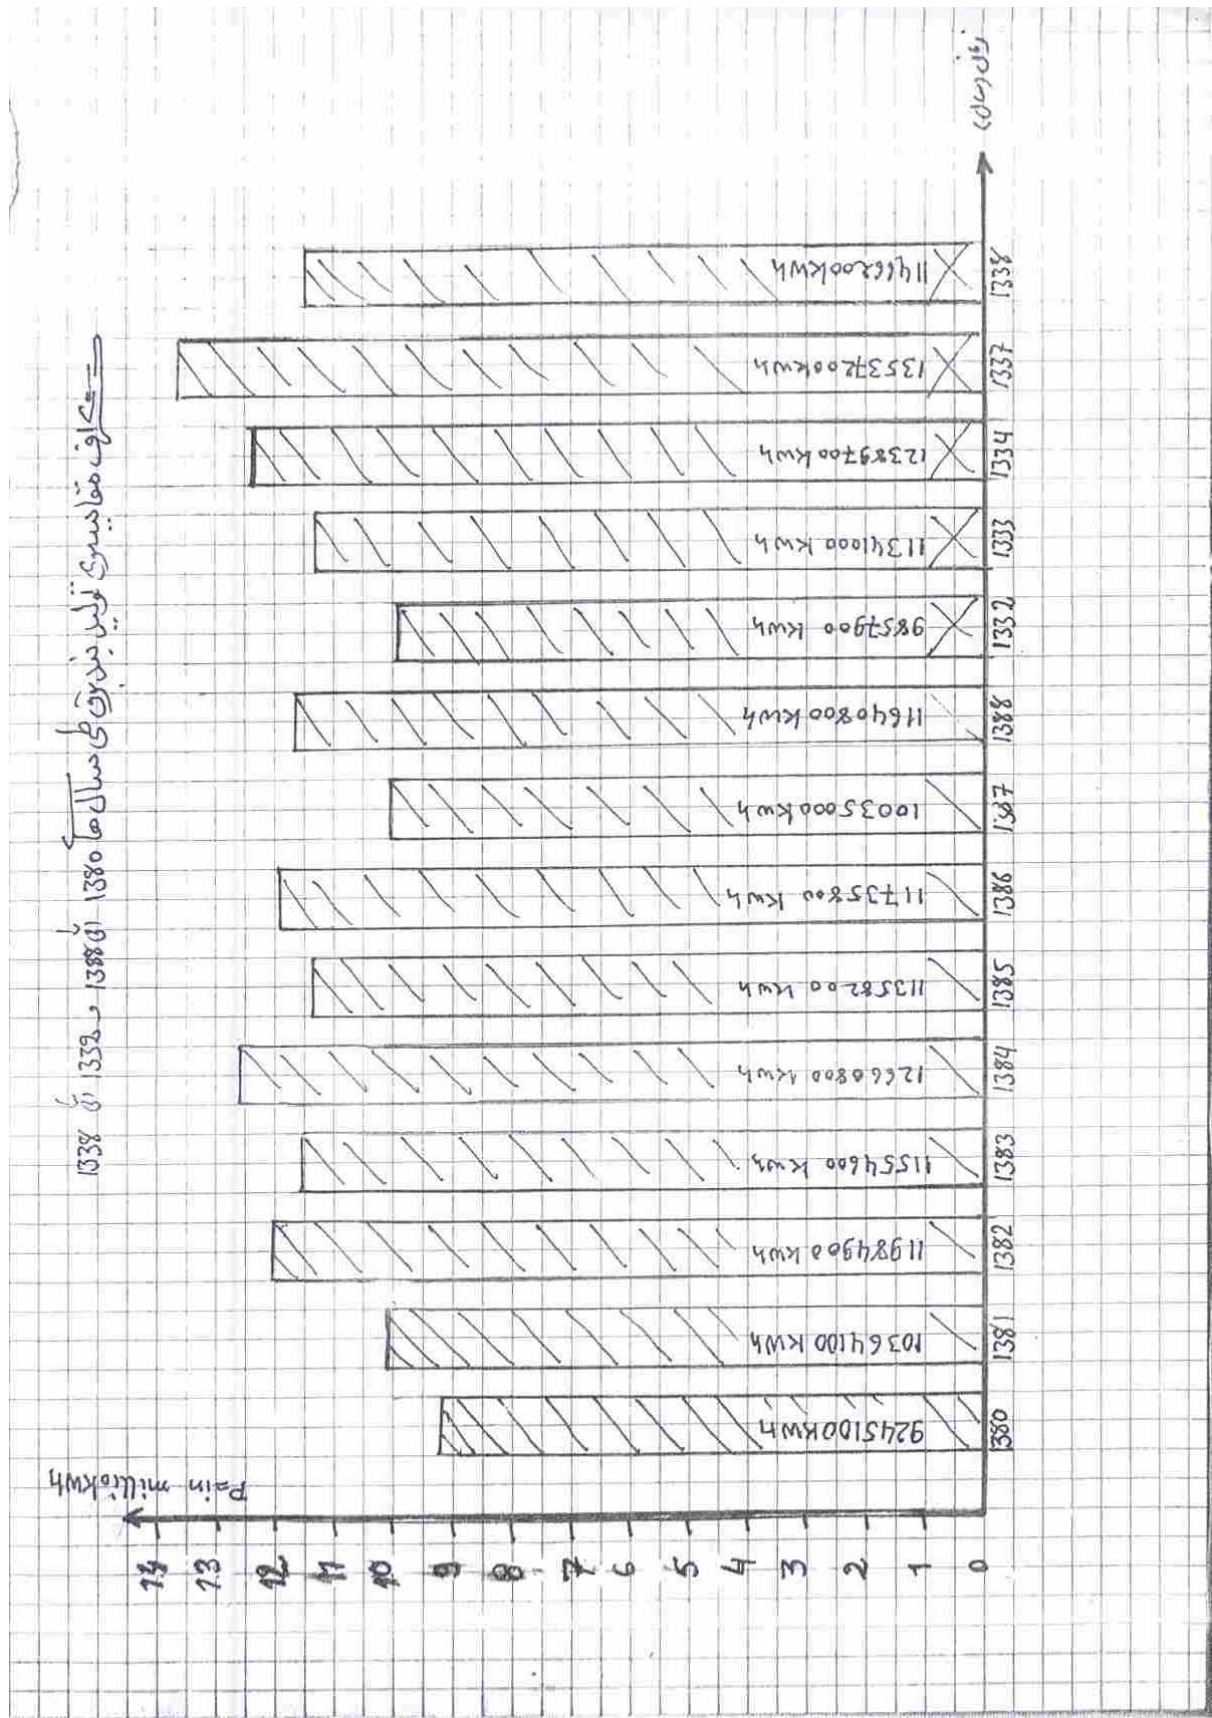 گراف مقایسوی تولید بند برق طی سال های 1380 الی 1388 و 1332 الی 1338
P=in milliokwh
14
13
12
11
10
9
8
7
6
5
4
3
2
1
0
9245100kwh
10364100 kwh
11984900 kwh
11554600 kwh
12660800 kwh
11358200 kwh
11735800 kwh
10035000kwh
11640800 kwh
9857900 kwh
11341000 kwh
12389700 kwh
13537200kwh
11466200kwh
1380
1381
1382
1383
1384
1385
1386
1387
1388
1332
1333
1334
1337
1338